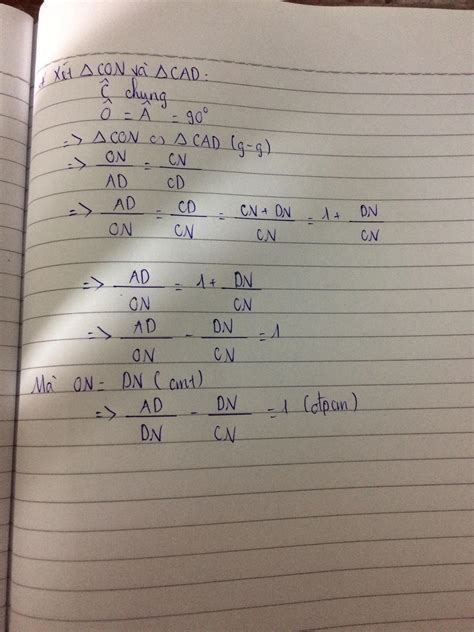 + Xét △CON và △CAD:
Ĉ chung
Ô = Â = 90°
=> △CON ∽ △CAD (g-g)
=> ON/AD = CN/CD
=> AD/ON = CD/CN = CN + DN/CN = 1 + DN/CN
=> AD/ON = 1 + DN/CN
=> AD/ON - DN/CN = 1
Mà ON = DN (cmt)
=> AD/DN - DN/CN = 1 (đpcm)